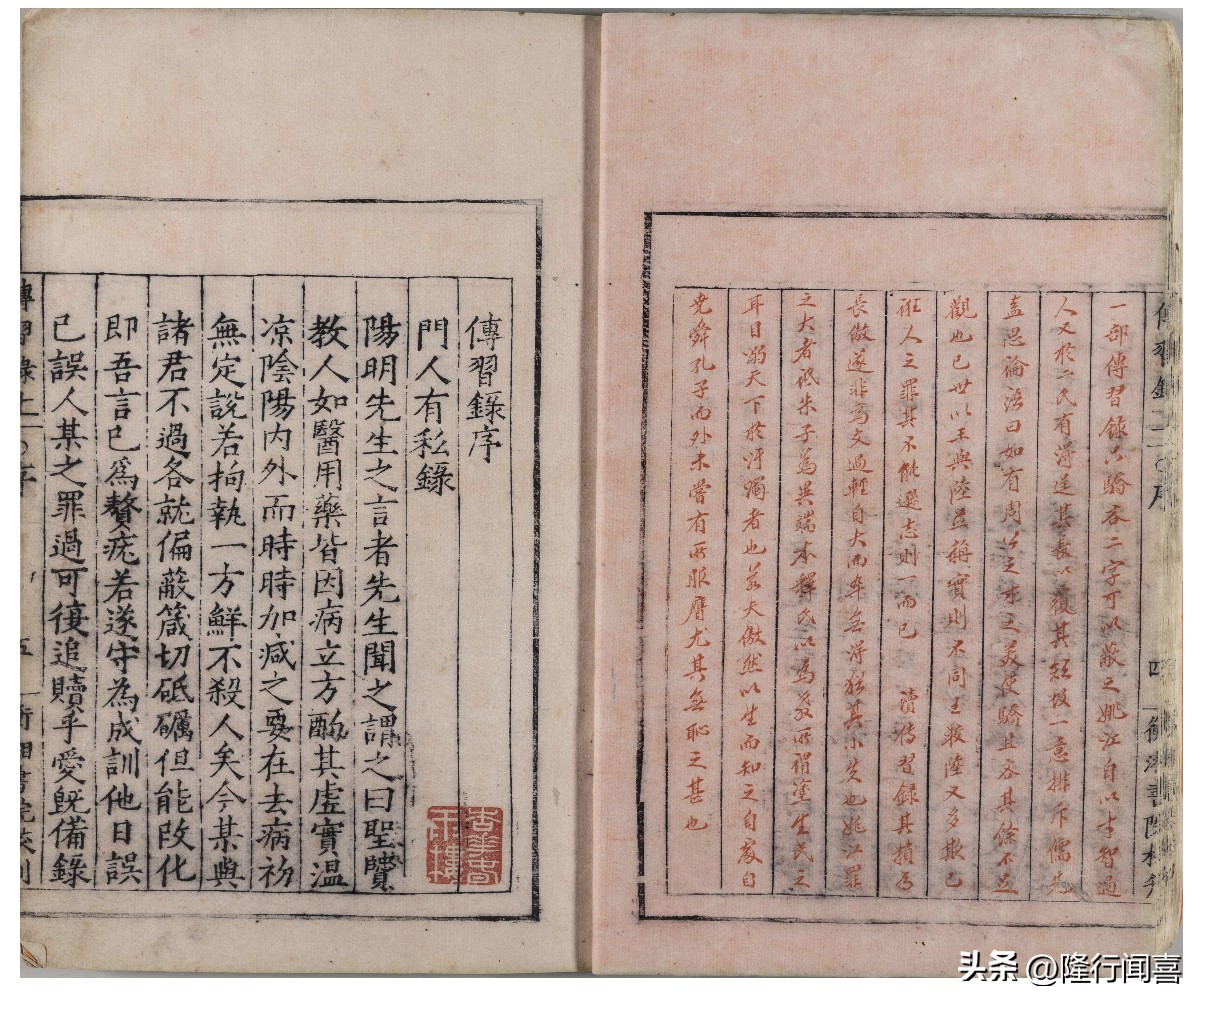 一部傳習錄只驕吝二字可以蔽之姚江自以才智過
人又於二氏有淂遂其長以復其短故一意排斥儒先
盖思論語曰如有周公之才之美使驕且吝其餘不足
觀也已世以王與陸並稱實則不同王較陸又多欺己
誑人之罪其不能遜志則一而已 讀傳習錄其指為
長傲遂非為文過輕自大而卒無淂猶其小失也姚江罪
之大者詆朱子為異端本釋氏以為教所謂塗生民之
耳目溺天下於汙濁者也若夫傲然以生而知之自家自
堯舜孔子而外未嘗有所服膺尤其無恥之甚也
傳習錄序
門人有私錄
陽明先生之言者先生聞之謂之曰聖賢
教人如醫用藥皆因病立方酌其虛實溫
凉陰陽內外而時時加減之要在去病初
無定說若拘執一方鮮不殺人矣今某與
諸君不過各就偏蔽箴切砥礪但能改化
即吾言已為贅疣若遂守為成訓他日誤
己誤人某之罪過可復追贖乎愛既備錄
头条 @隆行闻喜